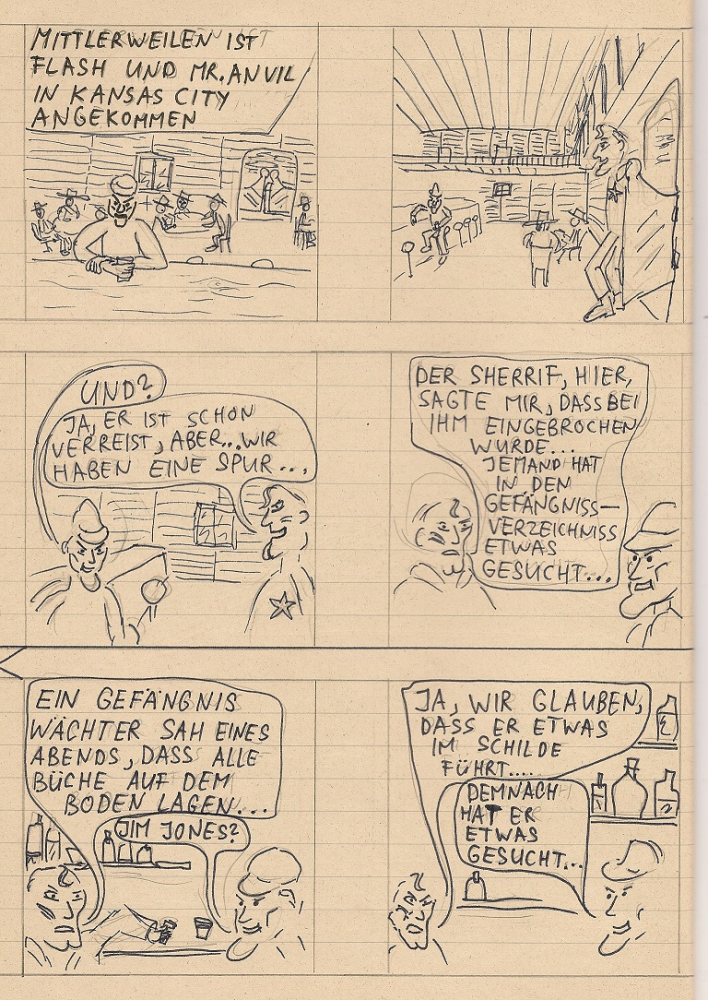 MITTLERWEILEN IST
FLASH UND MR. ANVIL
IN KANSAS CITY
ANGEKOMMEN
UND?
JA, ER IST SCHON
VERREIST, ABER... WIR
HABEN EINE SPUR....
DER SHERRIF, HIER,
SAGTE MIR, DASS BEI
IHM EINGEBROCHEN
WURDE...
JEMAND HAT
IN DEN
GEFÄNGNISS-
VERZEICHNISS
ETWAS
GESUCHT...
EIN GEFÄNGNIS
WÄCHTER SAH EINES
ABENDS, DASS ALLE
BÜCHE AUF DEM
BODEN LAGEN...
JIM JONES?
JA, WIR GLAUBEN,
DASS ER ETWAS
IM SCHILDE
FÜHRT....
DEMNACH
HAT ER
ETWAS
GESUCHT...